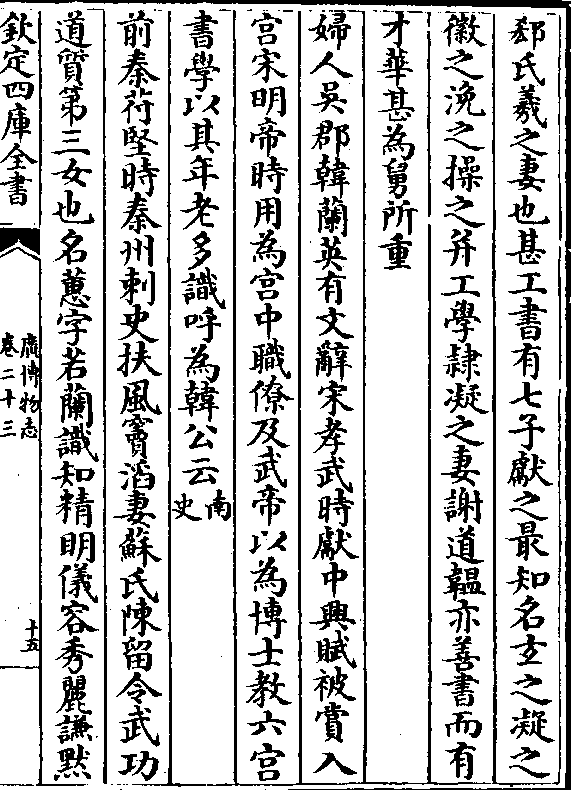 郄氏羲之妻也甚工書有七子獻之最知名玄之凝之
徽之渙之操之并工學隸凝之妻謝道韞亦善書而有
才華甚為舅所重
婦人吳郡韓蘭英有文辭宋孝武時獻中興賦被賞入
宫宋明帝時用為宫中職僚及武帝以為博士教六宫
書學以其年老多識呼為韓公云南史
前秦苻堅時秦州刺史扶風竇滔妻蘇氏陳留令武功
道質第三女也名蕙字若蘭識知精明儀容秀麗謙默
欽定四庫全書
廣博物志
卷二十三
十五